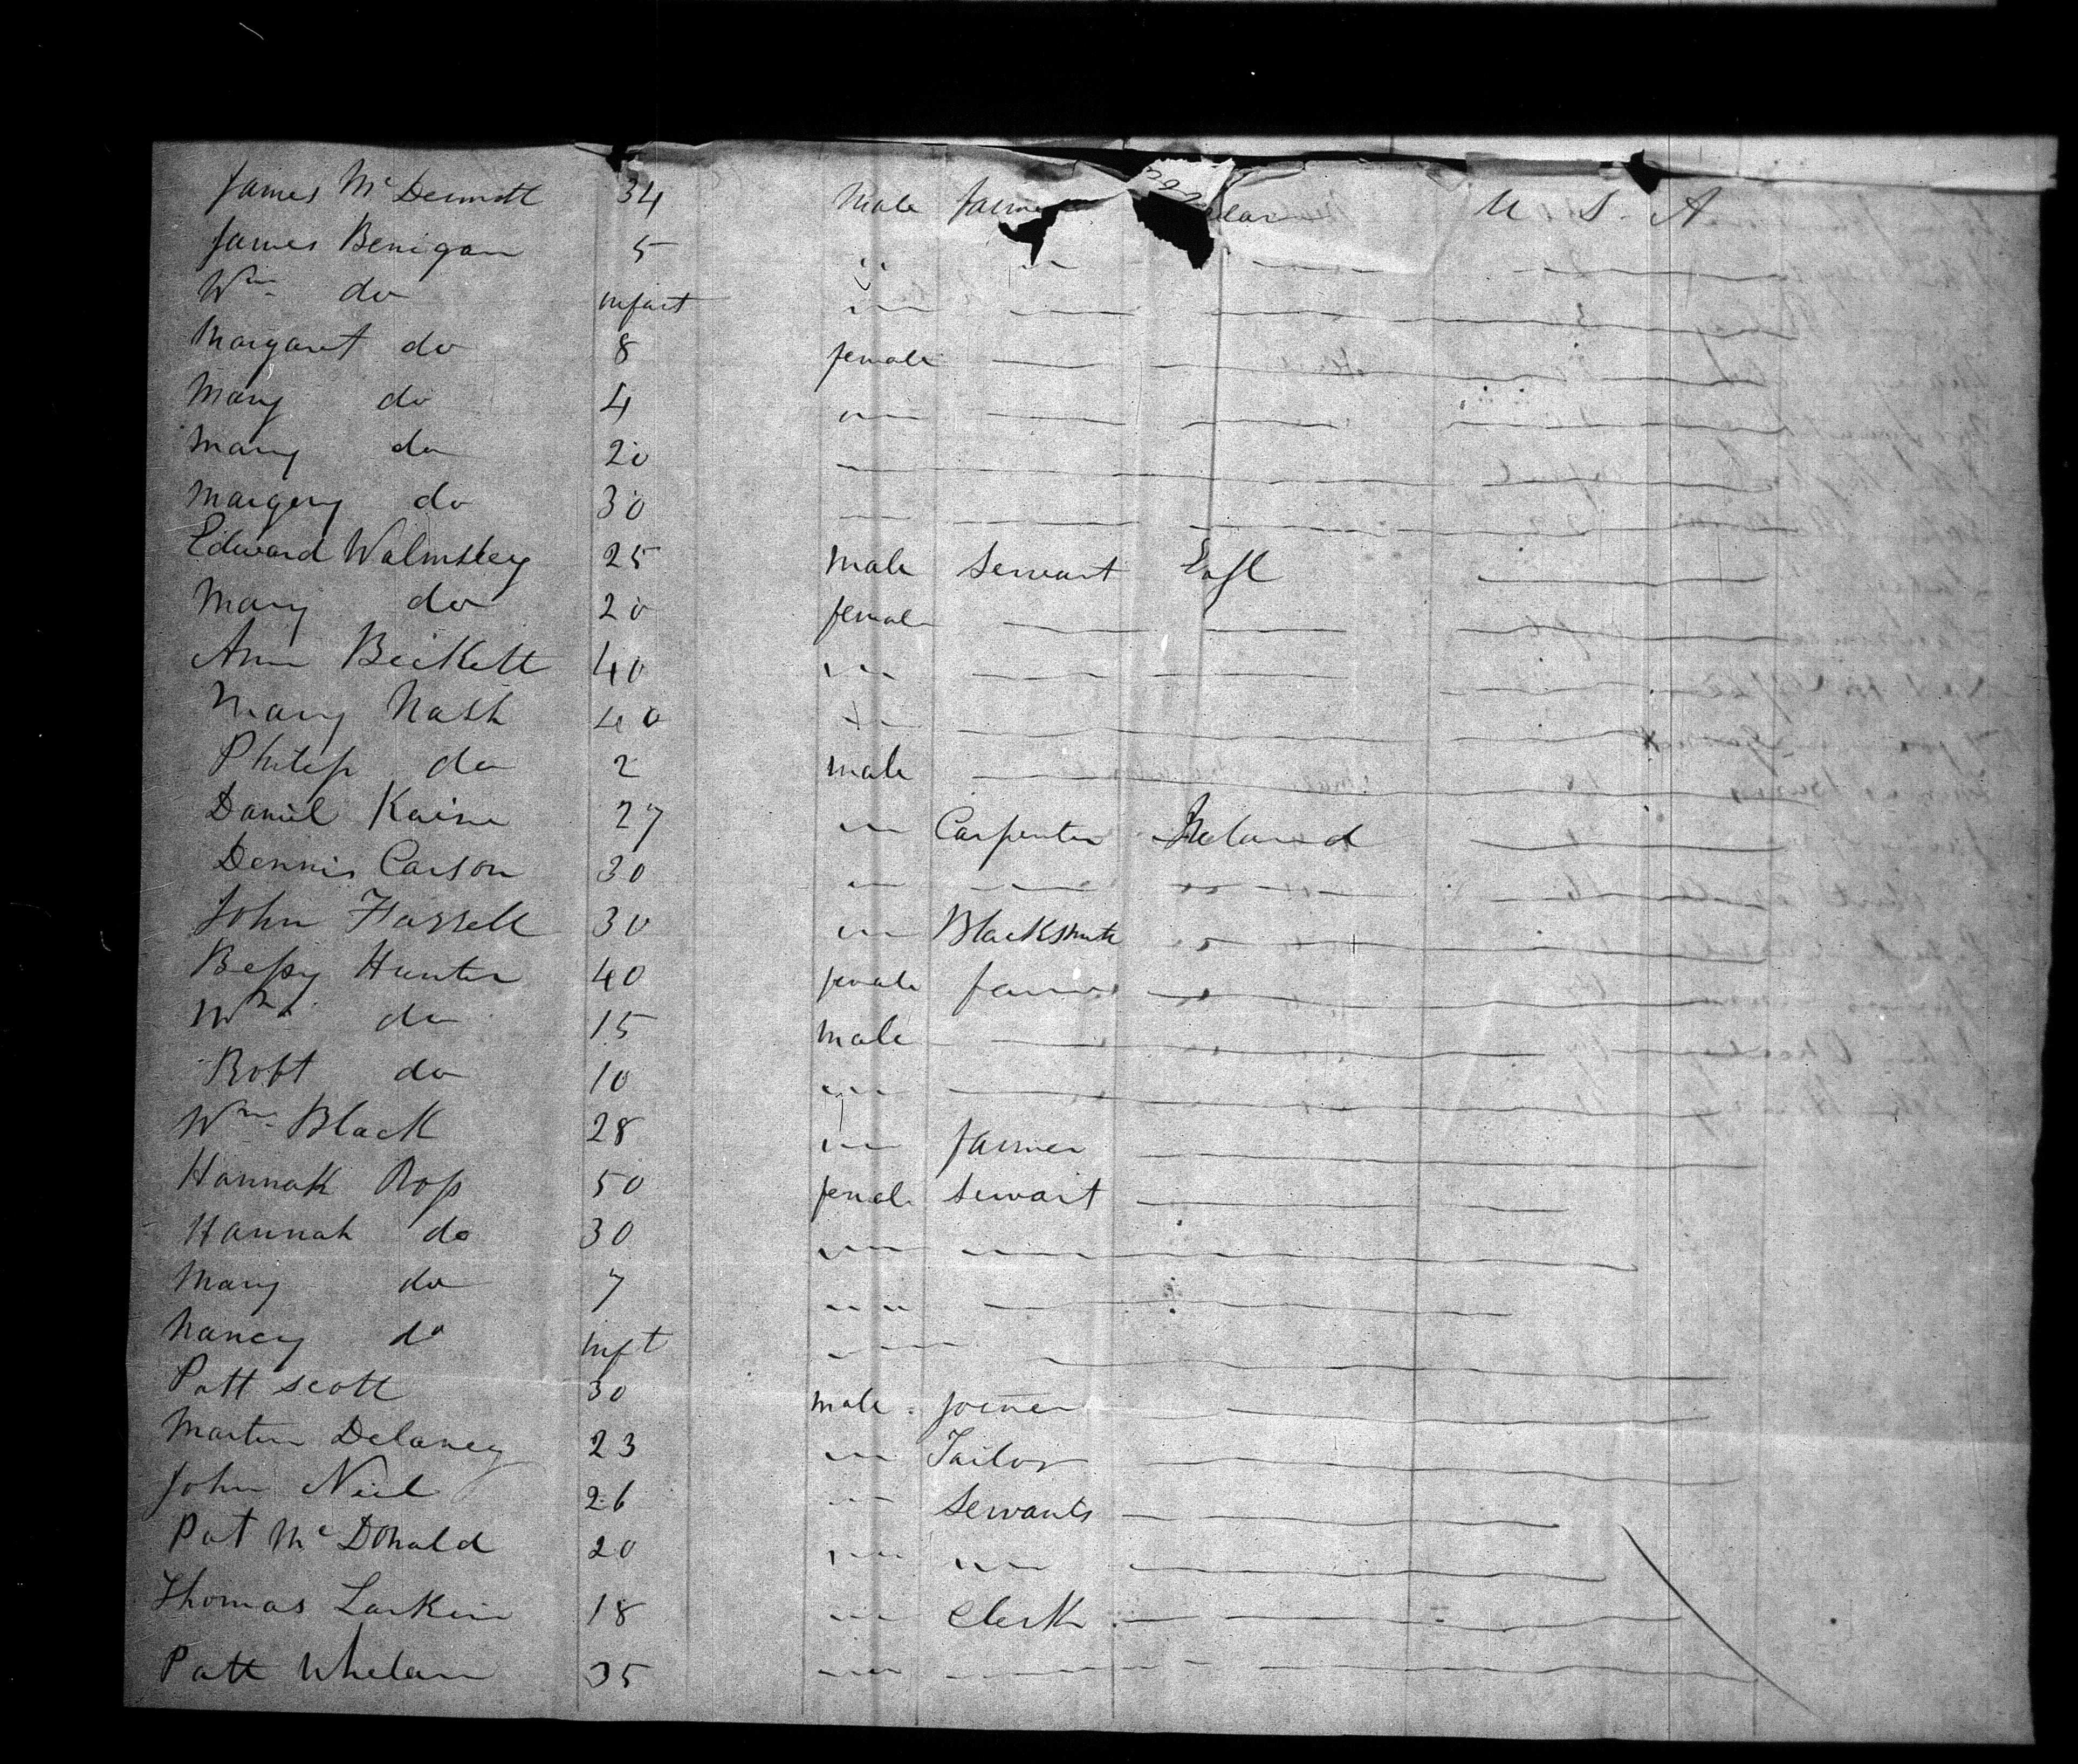 James McDermott 34 Male farmer U S. A
James Benigan 5 " "
Wm do infant " "
Margaret do 8 female
Mary do 4 " "
Mary do 20
Margery do 30
Edward Walmsley 25 Male Servant Engl
Mary do 20 female
Ann Beckett 40 " "
Mary Nash 40 " "
Philip do 2 male
Daniel Kaine 27 " " Carpenter Ireland
Dennis Carson 30 " " " "
John Farrell 30 " " Blacksmith " "
Bessy Hunter 40 female farmer " "
Wm do 15 male
Robt do 10 " "
Wm Black 28 " " farmer
Hannah Ross 50 female Servant
Hannah do 30 " " " "
Mary do 7 " "
Nancy do inft " "
Patt Scott 30 male joiner
Martin Delaney 23 " " Tailor
John Neil 26 " " Servants
Pat McDonald 20 " " " "
Thomas Larkin 18 " " Clerk
Patt Whelan 35 " " " "